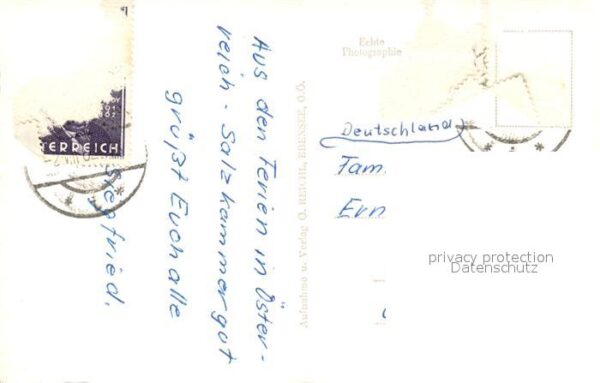 Aus den Ferien in Öster-
reich - Salzkammergot
grüßt Euch alle
Siegfried.
ERREICH
Echte
Photographie
Aufnahme u. Verlag O. REICHL, EBENSEE, O.Ö.
Deutschland
Fam.
Ern
privacy protection
Datenschutz